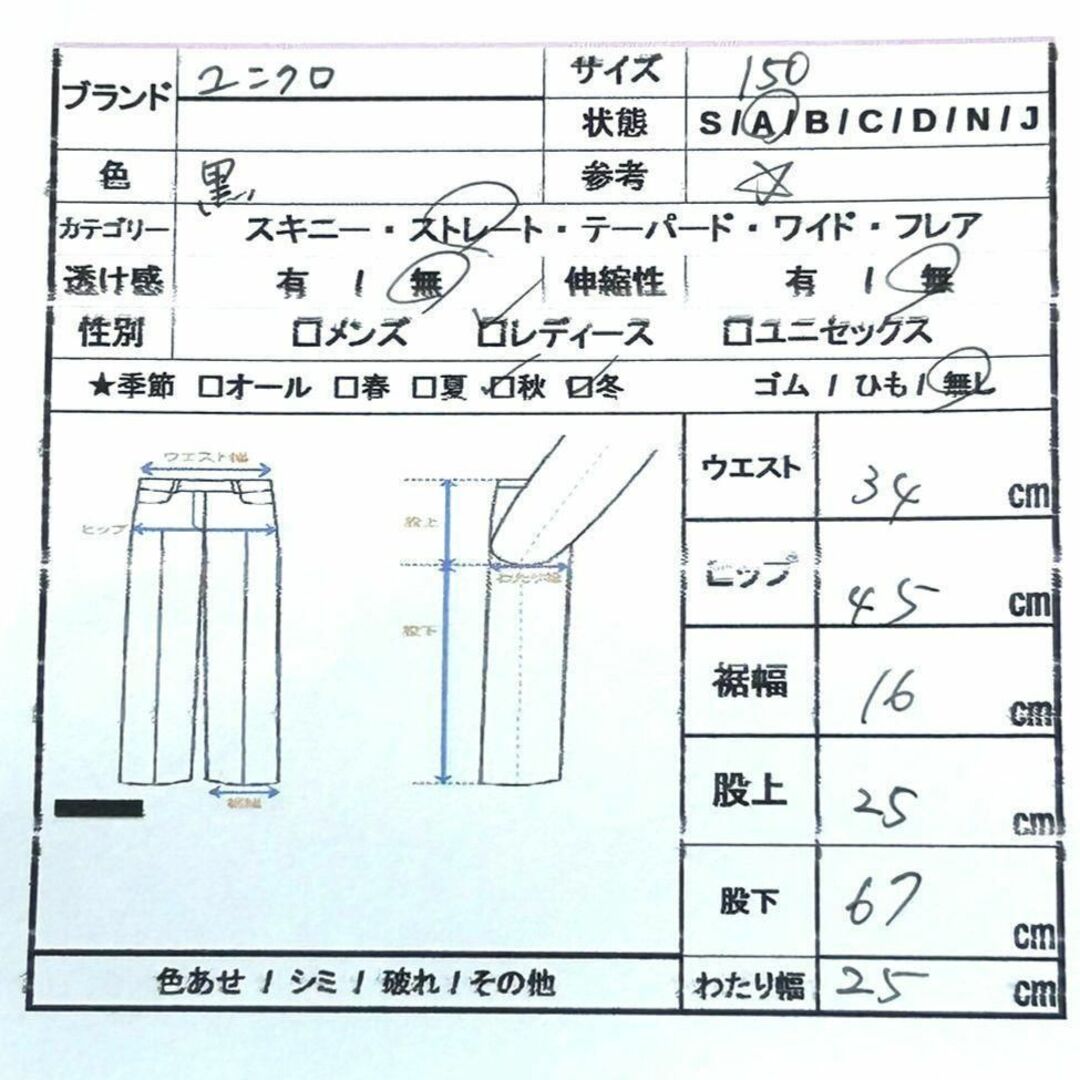 ブランド ユニクロ サイズ 150
状態 S / A / B / C / D / N / J
色 黒 参考 ☆
カテゴリー スキニー・ストレート・テーパード・ワイド・フレア
透け感 有 / 無 伸縮性 有 / 無
性別 □メンズ □レディース □ユニセックス
★季節 □オール □春 □夏 □秋 □冬 ゴム / ひも / 無し
ウエスト幅
ヒップ
裾幅
股上
わたり幅
股下
ウエスト 34 cm
ヒップ 45 cm
裾幅 16 cm
股上 25 cm
股下 67 cm
色あせ / シミ / 破れ / その他
わたり幅 25 cm